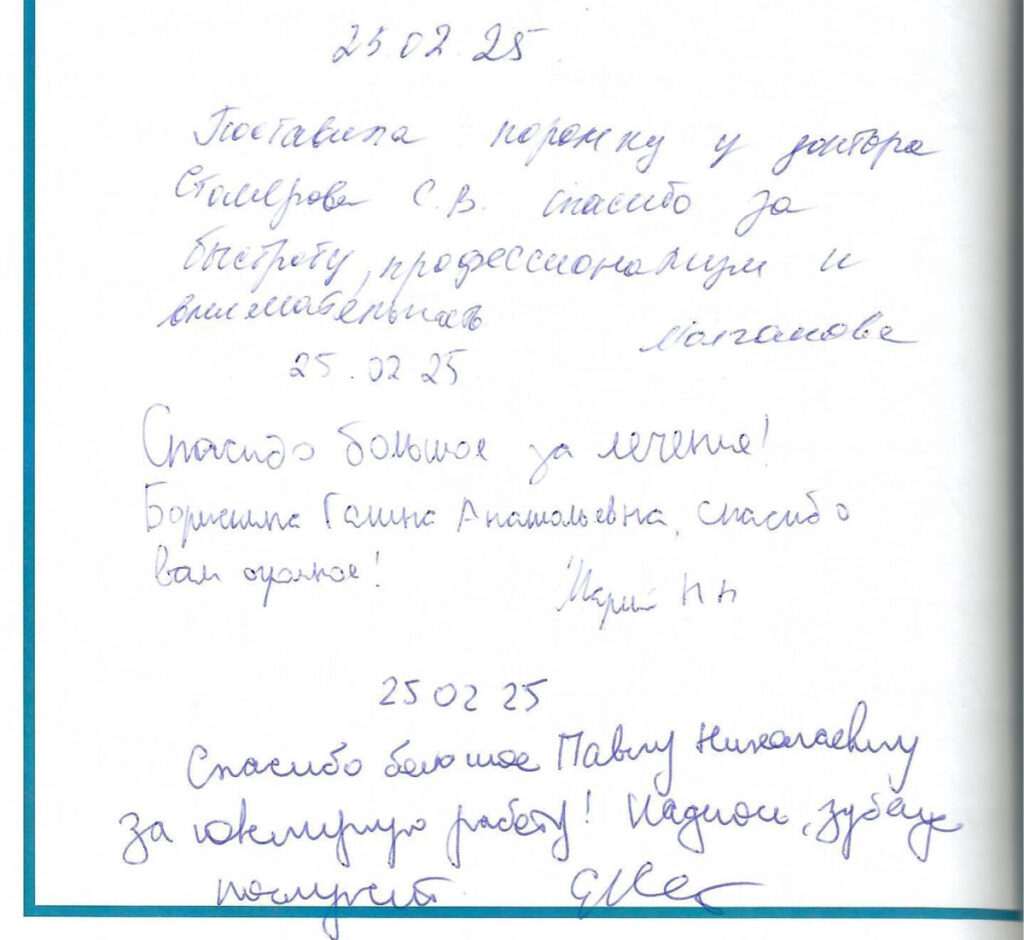 25.02.25
Поставила коронку у доктора
Столярова С.В. спасибо за
быстроту, профессионализм и
внимательность
25.02 25
Спасибо большое за лечение!
Галина Анатольевна, спасибо
вам огромное!
Мария НН
25 02 25
Спасибо большое Павлу Николаевичу
за ювелирную работу! Надеюсь, зуб еще
послужит